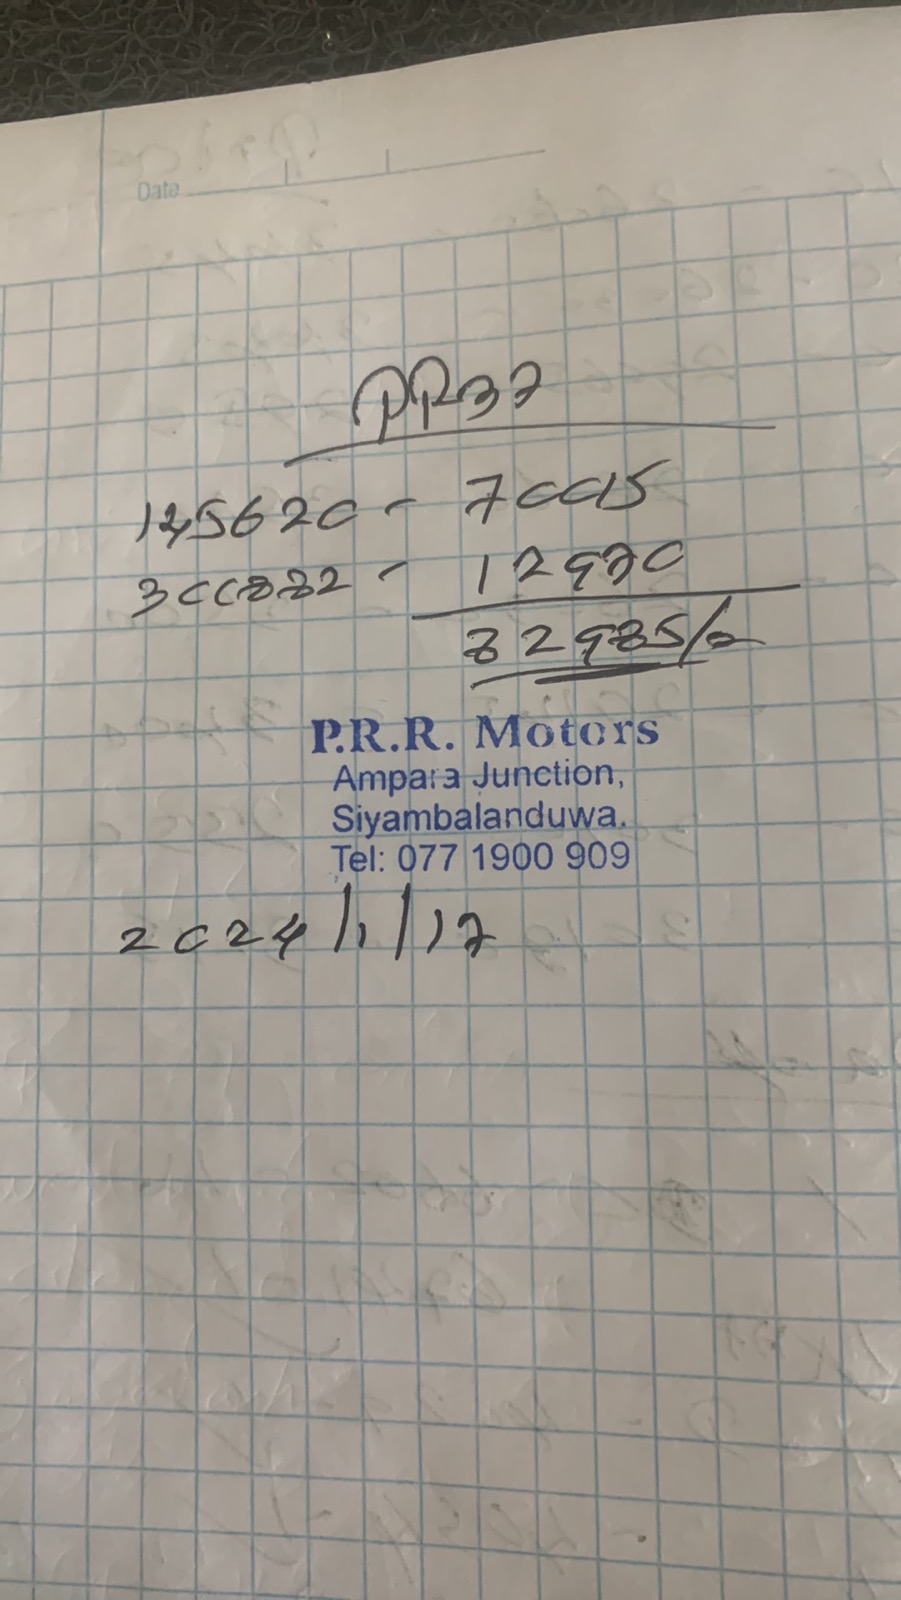 Date
PR37
145620 - 70015
300882 - 12970
82985/=
P.R.R. Motors
Ampara Junction,
Siyambalanduwa.
Tel: 077 1900 909
2024/1/17